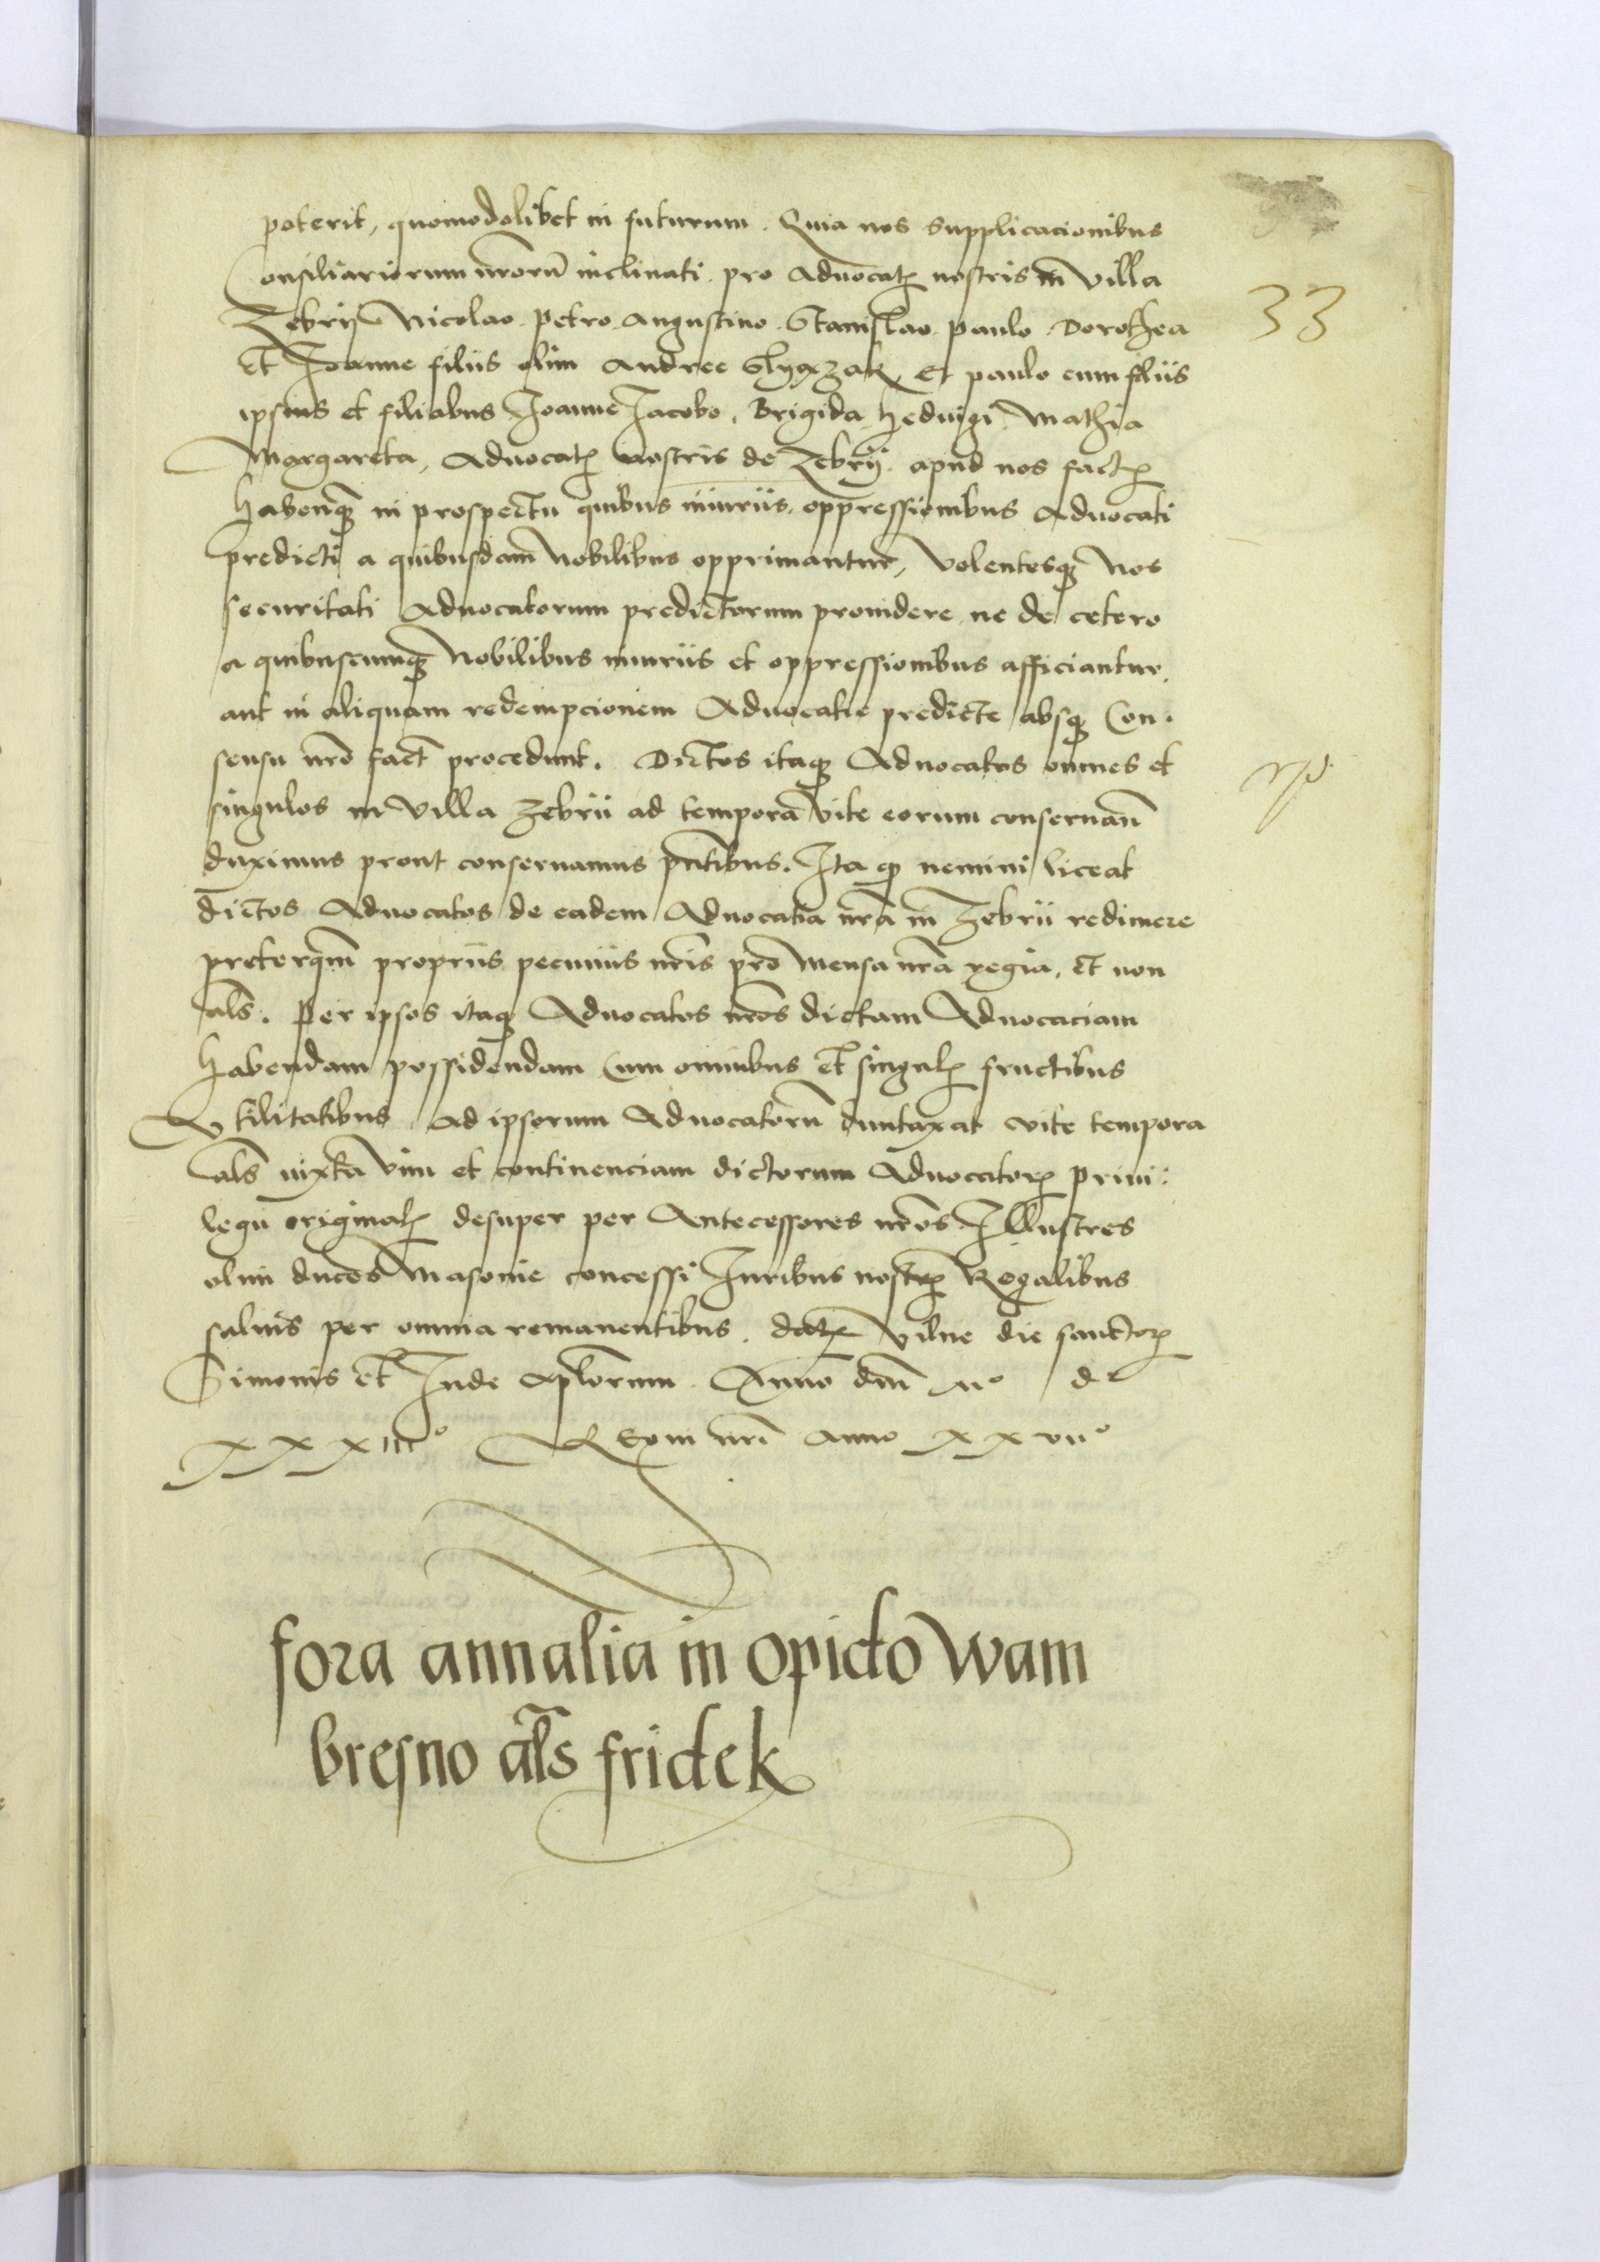 poterit, quomodolibet in futurum. Quia nos supplicacionibus
Consiliariorum nrorū inclinati pro Aduocat~ nostris in villa
Zebrij Nicolao Petro Augustino Stanislao Paulo Dorothea
33
Et Joanne filiis olim Andree Et paulo cum filiis
ipsius et filiabus Joanne Jacobo, Brigida hedwigi Mathia
Margareta, Aduocat~ nostris de Zebrij apud nos fact~
habentesq~ in prospectu quibus iniuriis oppressionibus Aduocati
predicti a quibusdam Nobilibus opprimantur, volentesq~ Nos
securitati Aduocatorum predictorum prouidere ne de cetero
a quibuscumq~ Nobilibus iniuriis et oppressionibus afficiantur,
aut in aliquam redempcionem Aduocatie predicte absq~ Con-
sensu nr̄o fact~ procedunt. Dictos itaq~ Aduocatos omnes et
singulos in villa Zebrii ad tempora vite eorum conseruan̄
duximus prout conseruamus p̄ntibus. Ita q~ nemini liceat
dictos Aduocatos de eadem Aduocatia nr̄a in Zebrii redimere
preterq̄m propriis pecuniis nr̄is pro Mensa nr̄a regia, et non
al̄s. Per ipsos itaq~ Aduocatos nr̄os dictam Aduocaciam
habendam possidendam Cum omnibus et singul~ fructibus
Vtilitatibus Ad ipsorum Aduocatorū duntaxat vite tempora
al̄s iuxta vim et continenciam dictorum Aduocator~ priui-
legii original~ desuper per Antecessores nr̄os Illustres
olim duces Masouie concessi Iuribus nostr~ Regalibus
saluis per omnia remanentibus. dat~ Vilne die sanctor~
Simonis et Iude Ap̄lorum. Anno dn̄i Mo d
XXXIIIo Regni nr̄i anno XXVIIo
fora annalia in opido Wam
bresno al̄s fridek